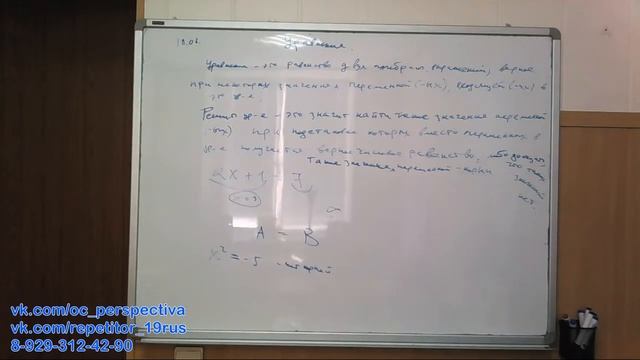 Уравнения.
Уравнение - это равенство двух выражений, верное
при некоторых значениях переменной (-ных), входящей (-их) в
это ур-е.
Решить ур-е - это значит найти такие значения переменной
(-ных) при подстановке которых вместо переменных в
ур-е получается верное числовое равенство, либо доказать,
что таких
значений
нет.
Такие значения переменной - корни
2x + 1 = 7
x = 3
A = B
x² = -5 - нет корней
vk.com/oc_perspectiva
vk.com/repetitor_19rus
8-929-312-42-90